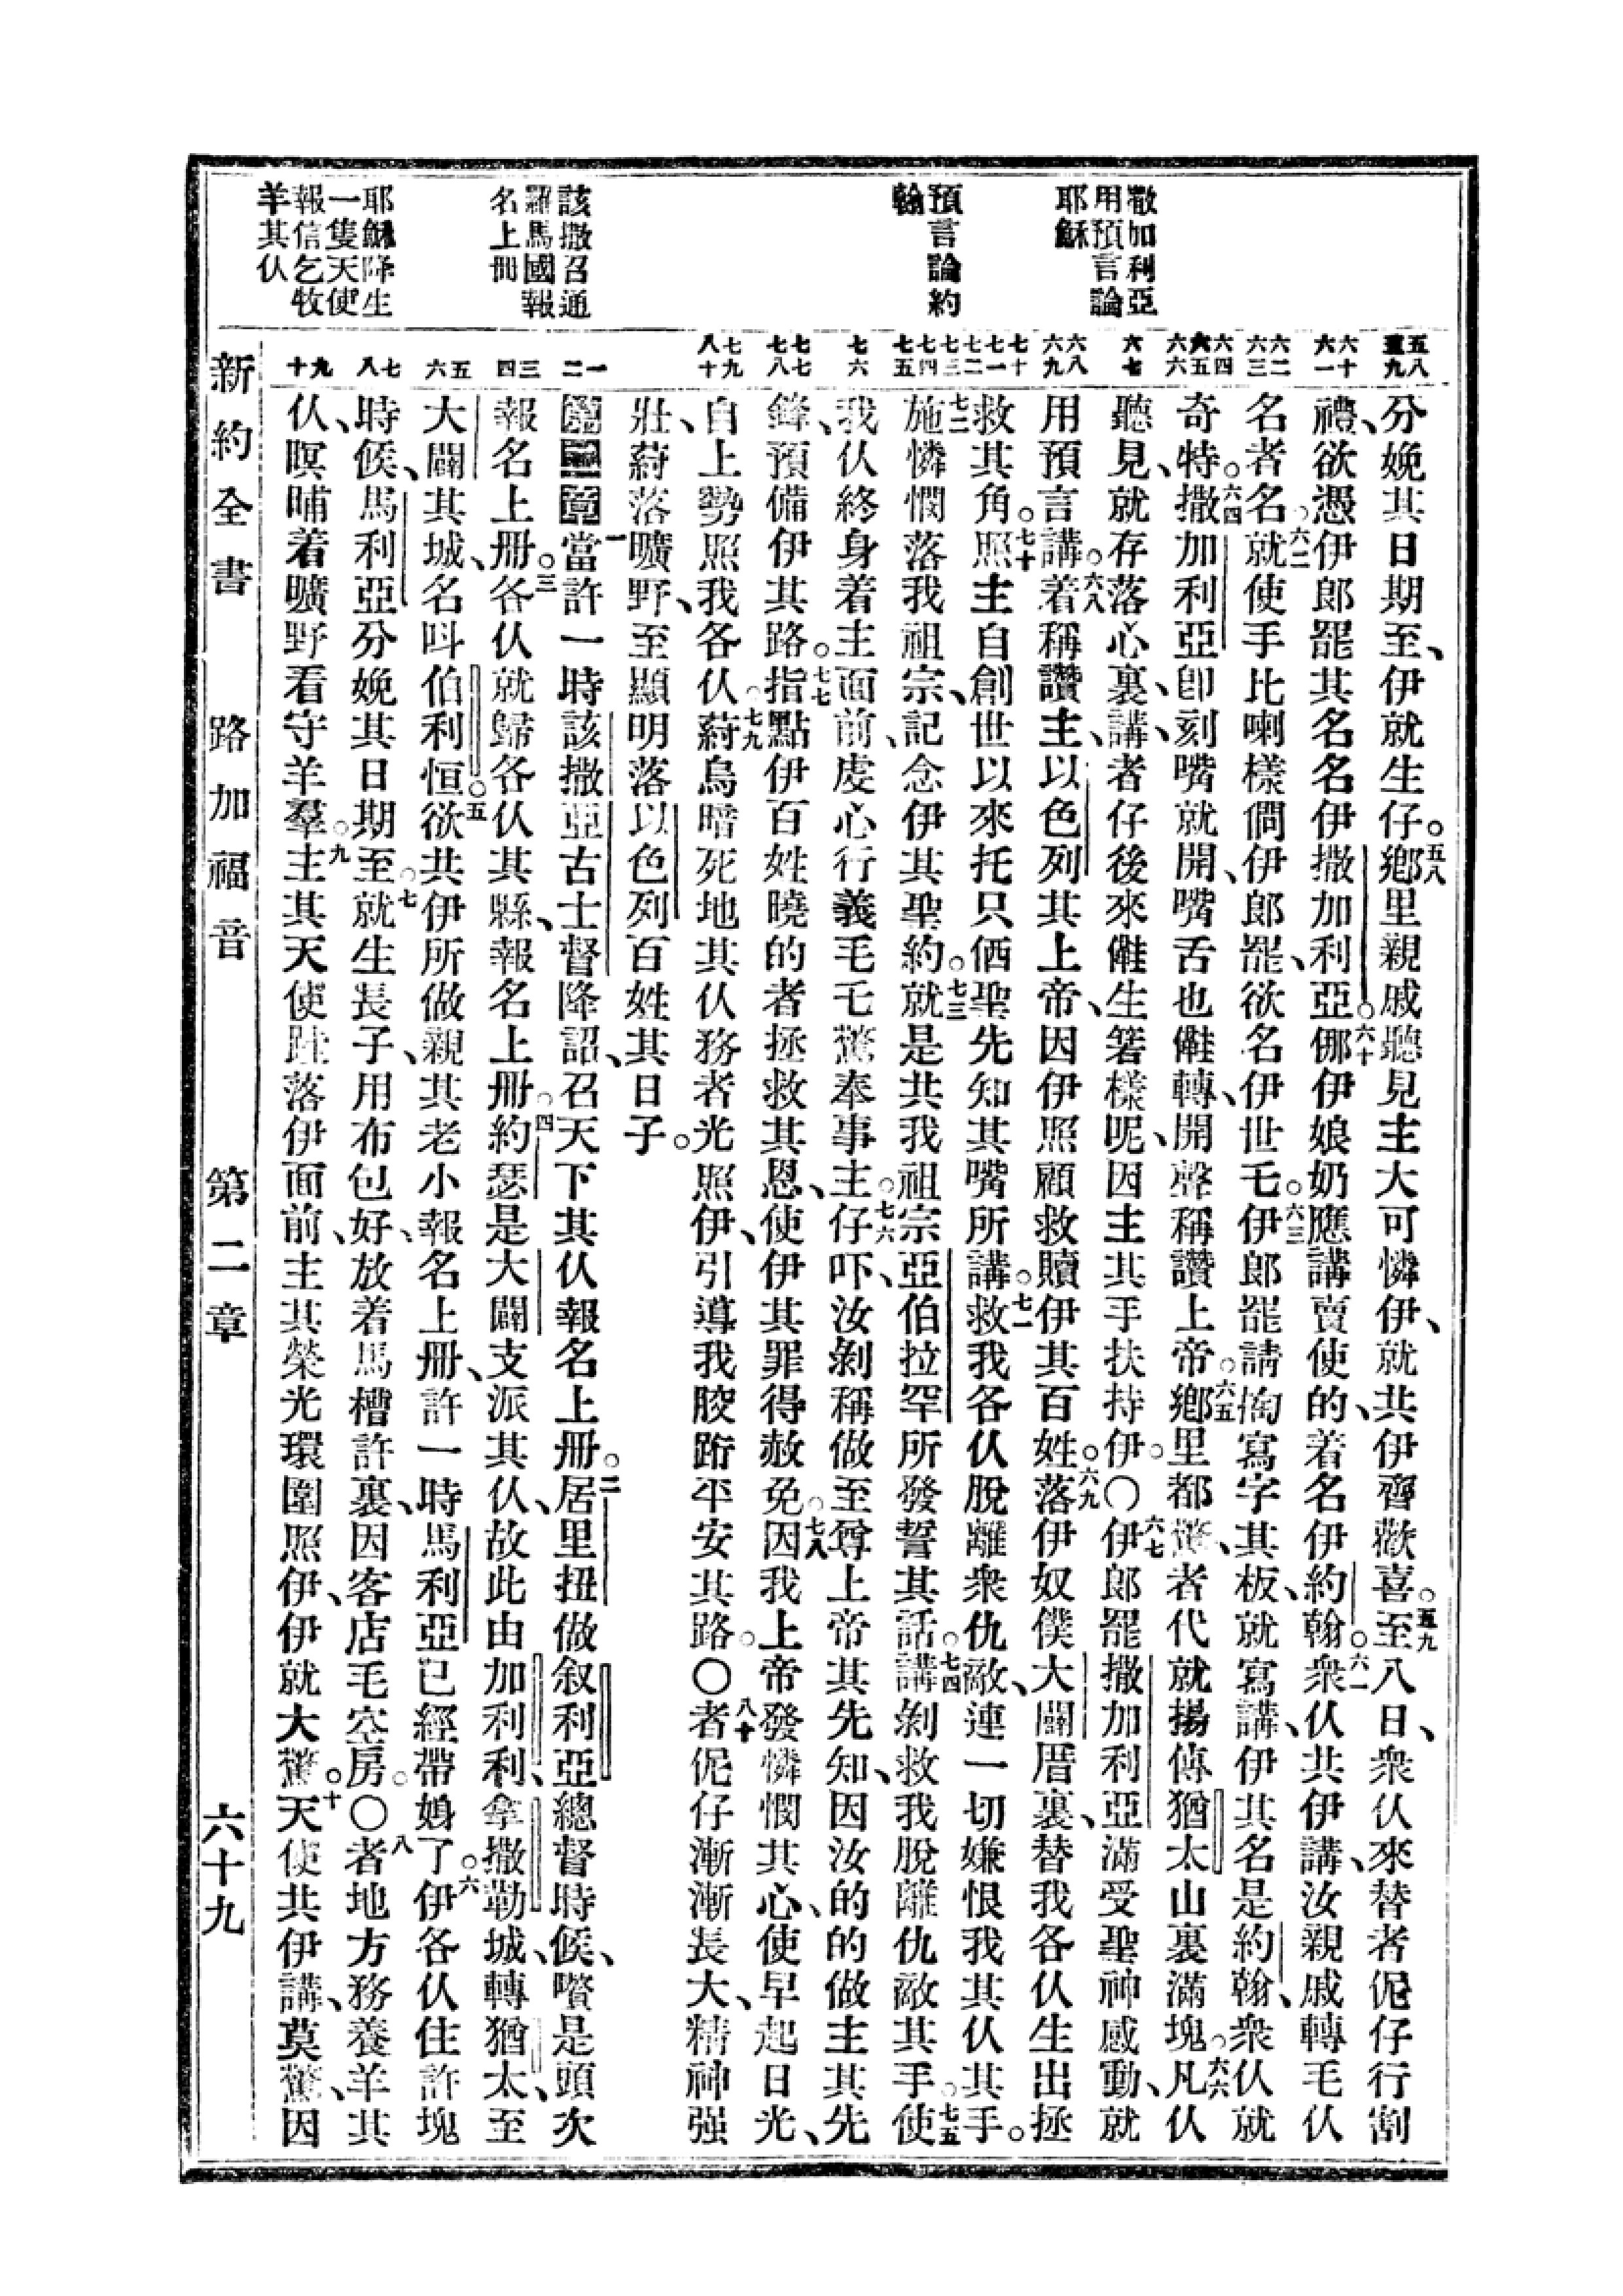 撒加利亞
用預言論
耶穌
預言論約
翰
該撒召通
羅馬國報
名上冊
耶穌降生
一隻天使
報信乞牧
羊其仈
分娩其日期至、伊就生仔。五八鄉里親戚聽見主大可憐伊、就共伊齊歡喜。五九至八日、衆仈來替者伲仔行割
禮、欲憑伊郎罷其名名伊撒加利亞。六十㑚伊娘奶應講賣使的、着名伊約翰。六一衆仈共伊講、汝親戚轉毛仈
名者名。六二就使手比喇樣㒓伊郎罷、欲名伊世乇。六三伊郎罷請掏寫字其板、就寫講、伊其名是約翰、衆仈就
奇特。六四撒加利亞卽刻嘴就開、嘴舌也儺轉、開聲稱讚上帝。六五鄉里都驚、者代就揚傳猶太山裏滿塊。六六凡仈
聽見、就存落心裏、講、者仔後來儺生箬樣呢、因主其手扶持伊。〇六七伊郎罷撒加利亞滿受聖神感動、就
用預言講。六八着稱讚主、以色列其上帝、因伊照顧救贖伊其百姓。六九落伊奴僕大闢厝裏、替我各仈生出拯
救其角。七十照主自創世以來托只伷聖先知其嘴所講。七一救我各仈脫離衆仇敵、連一切嫌恨我其仈其手。
七二施憐憫落我祖宗、記念伊其聖約。七三就是共我祖宗亞伯拉罕所發誓其話。七四講剝救我脫離仇敵其手。七五使
我仈終身着主面前、虔心行義毛乇驚奉事主。七六仔吓、汝剝稱做至尊上帝其先知、因汝的的做主其先
鋒、預備伊其路。七七指點伊百姓曉的者拯救其恩、使伊其罪得赦免。七八因我上帝發憐憫其心、使早起日光、
自上勢照我各仈。七九蔚烏暗死地其仈務者光照伊、引導我骹跡平安其路。〇八十者伲仔漸漸長大、精神强
壯、蔚落曠野、至顯明落以色列百姓其日子。
第二章一當許一時該撒亞古士督降詔、召天下其仈報名上冊。二居里扭做叙利亞總督時候、嚽是頭次
報名上冊。三各仈就歸各仈其縣、報名上冊。四約瑟是大闢支派其仈、故此由加利利、拿撒勒城、轉猶太、至
大闢其城、名呌伯利恒。五欲共伊所做親其老小報名上冊、許一時馬利亞已經帶娠了。六伊各仈住許塊
時候、馬利亞分娩其日期至。七就生長子、用布包好、放着馬槽許裏、因客店毛空房。〇八者地方務養羊其
仈、暝晡着曠野看守羊羣。九主其天使跕落伊面前、主其榮光環圍照伊、伊就大驚。十天使共伊講、莫驚、因
新約全書 路加福音 第二章 六十九